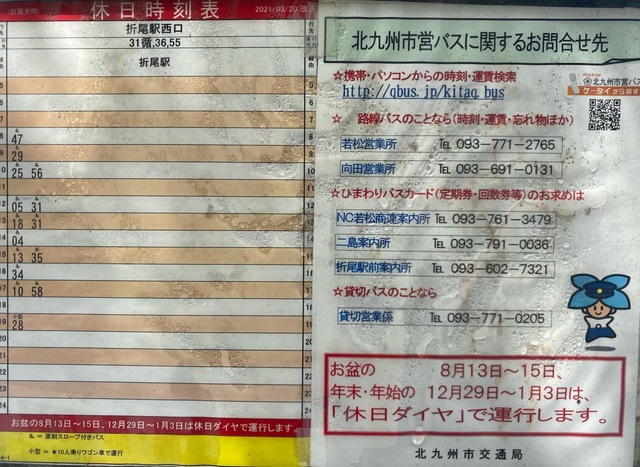 (折尾光明)
休日時刻表
2021/03/20 改正
折尾駅西口
31循,36,55
折尾駅
5 5
6 6
7 7
8 47 8
9 29 9
10 25 56 10
11 11
12 05 31 12
13 18 31 13
14 04 14
15 13 35 15
16 34 16
17 10 58 17
18 18
19 小型 28 19
20 20
21 21
22 22
23 23
24 24
お盆の8月13日~15日、12月29日~1月3日は休日ダイヤで運行します。
& = 原則スロープ付きバス
小型 = ★10人乗りワゴン車で運行
北九州市営バスに関するお問合せ先
☆携帯・パソコンからの時刻・運賃検索
http://qbus.jp/kitaq_bus
北九州市営バス
ケータイから探す
☆ 路線バスのことなら(時刻・運賃・忘れ物ほか)
若松営業所 TEL 093-771-2765
向田営業所 TEL 093-691-0131
☆ひまわりバスカード(定期券・回数券等)のお求めは
NC若松商連案内所 TEL 093-761-3479
二島案内所 TEL 093-791-0036
折尾駅前案内所 TEL 093-602-7321
☆貸切バスのことなら
貸切営業係 TEL 093-771-0205
お盆の 8月13日~15日、
年末・年始の 12月29日~1月3日は、
「休日ダイヤ」で運行します。
北九州市交通局